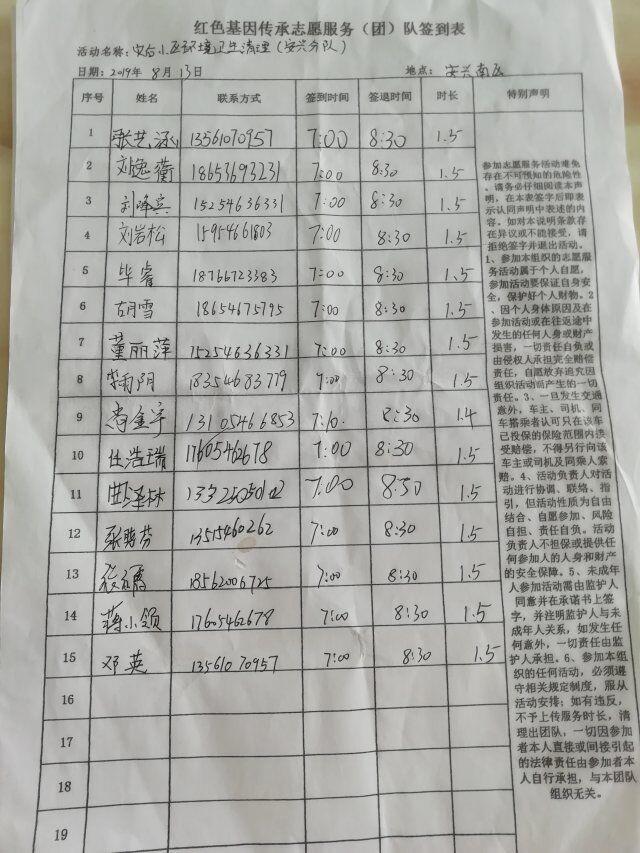 红色基因传承志愿服务（团）队签到表
活动名称：安合小区环境卫生清理（安兴分队）
日期：2019年8月13日 地点：安兴南区
序号 姓名 联系方式 签到时间 签退时间 时长 特别声明
1 13561070957 7:00 8:30 1.5
2 刘逸衡 18653693231 7:00 8:30 1.5
3 刘峰宾 15254636331 7:00 8:30 1.5
4 刘岩松 15954661803 7:00 8:30 1.5
5 毕睿 18766723383 7:00 8:30 1.5
6 胡雪 18654675795 7:00 8:30 1.5
7 董丽萍 15254636331 7:00 8:30 1.5
8 18354683779 7:00 8:30 1.5
9 尚金宇 13105466853 7:10. 8:30 1.4
10 任浩瑞 17605462678 7:00 8:30 1.5
11 曲泽林 7:00 8:30 1.5
12 张晓芬 13515460262 7:00 8:30 1.5
13 18562006725 7:00 8:30 1.5
14 蒋小领 17605462678 7:00 8:30 1.5
15 邓英 13561070957 7:00 8:30 1.5
16
17
18
19
参加志愿服务活动难免
存在不可预知的危险性
，请务必仔细阅读本声
明，在本表签字后即表
示认同声明中表述的内
容。如对本说明条款存
在异议或不能接受，请
拒绝签字并退出活动。
1、参加本组织的志愿服
务活动属于个人自愿，
参加活动要保证自身安
全，保护好个人财物。2
、因个人身体原因及在
参加活动或在往返途中
发生的任何人身或财产
损害，一切责任自负或
由侵权人承担完全赔偿
责任，自愿放弃追究因
组织活动而产生的一切
责任。3、一旦发生交通
意外，车主、司机、同
车搭乘者认可只在该车
已投保的保险范围内接
受赔偿，不得另行向该
车主或司机及同乘人索
赔。4、活动负责人对活
动进行协调、联络、指
引，但活动性质为自由
结合、自愿参加、风险
自担、责任自负。活动
负责人不担保或提供任
何参加人的人身和财产
的安全保障。5、未成年
人参加活动需由监护人
同意并在承诺书上签
字，并注明监护人与未
成年人关系，如发生任
何意外，一切责任由监
护人承担。6、参加本组
织的任何活动，必须遵
守相关规定制度，服从
活动安排；如有违反，
不予上传服务时长，清
理出团队，一切因参加
者本人直接或间接引起
的法律责任由参加者本
人自行承担，与本团队
组织无关。